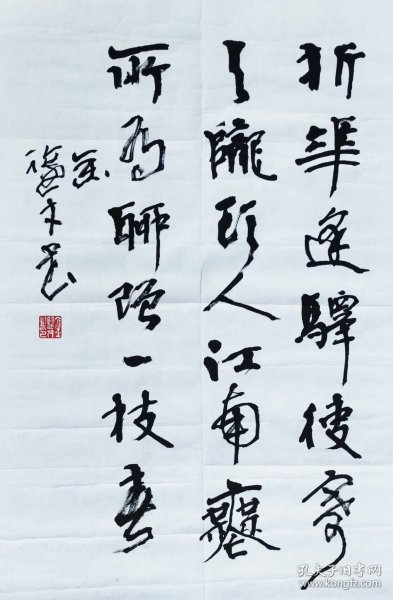 折華逢驛使寄
与隴頭人江南無
所有聊贈一枝春
孔夫子旧书网
www.kongfz.com